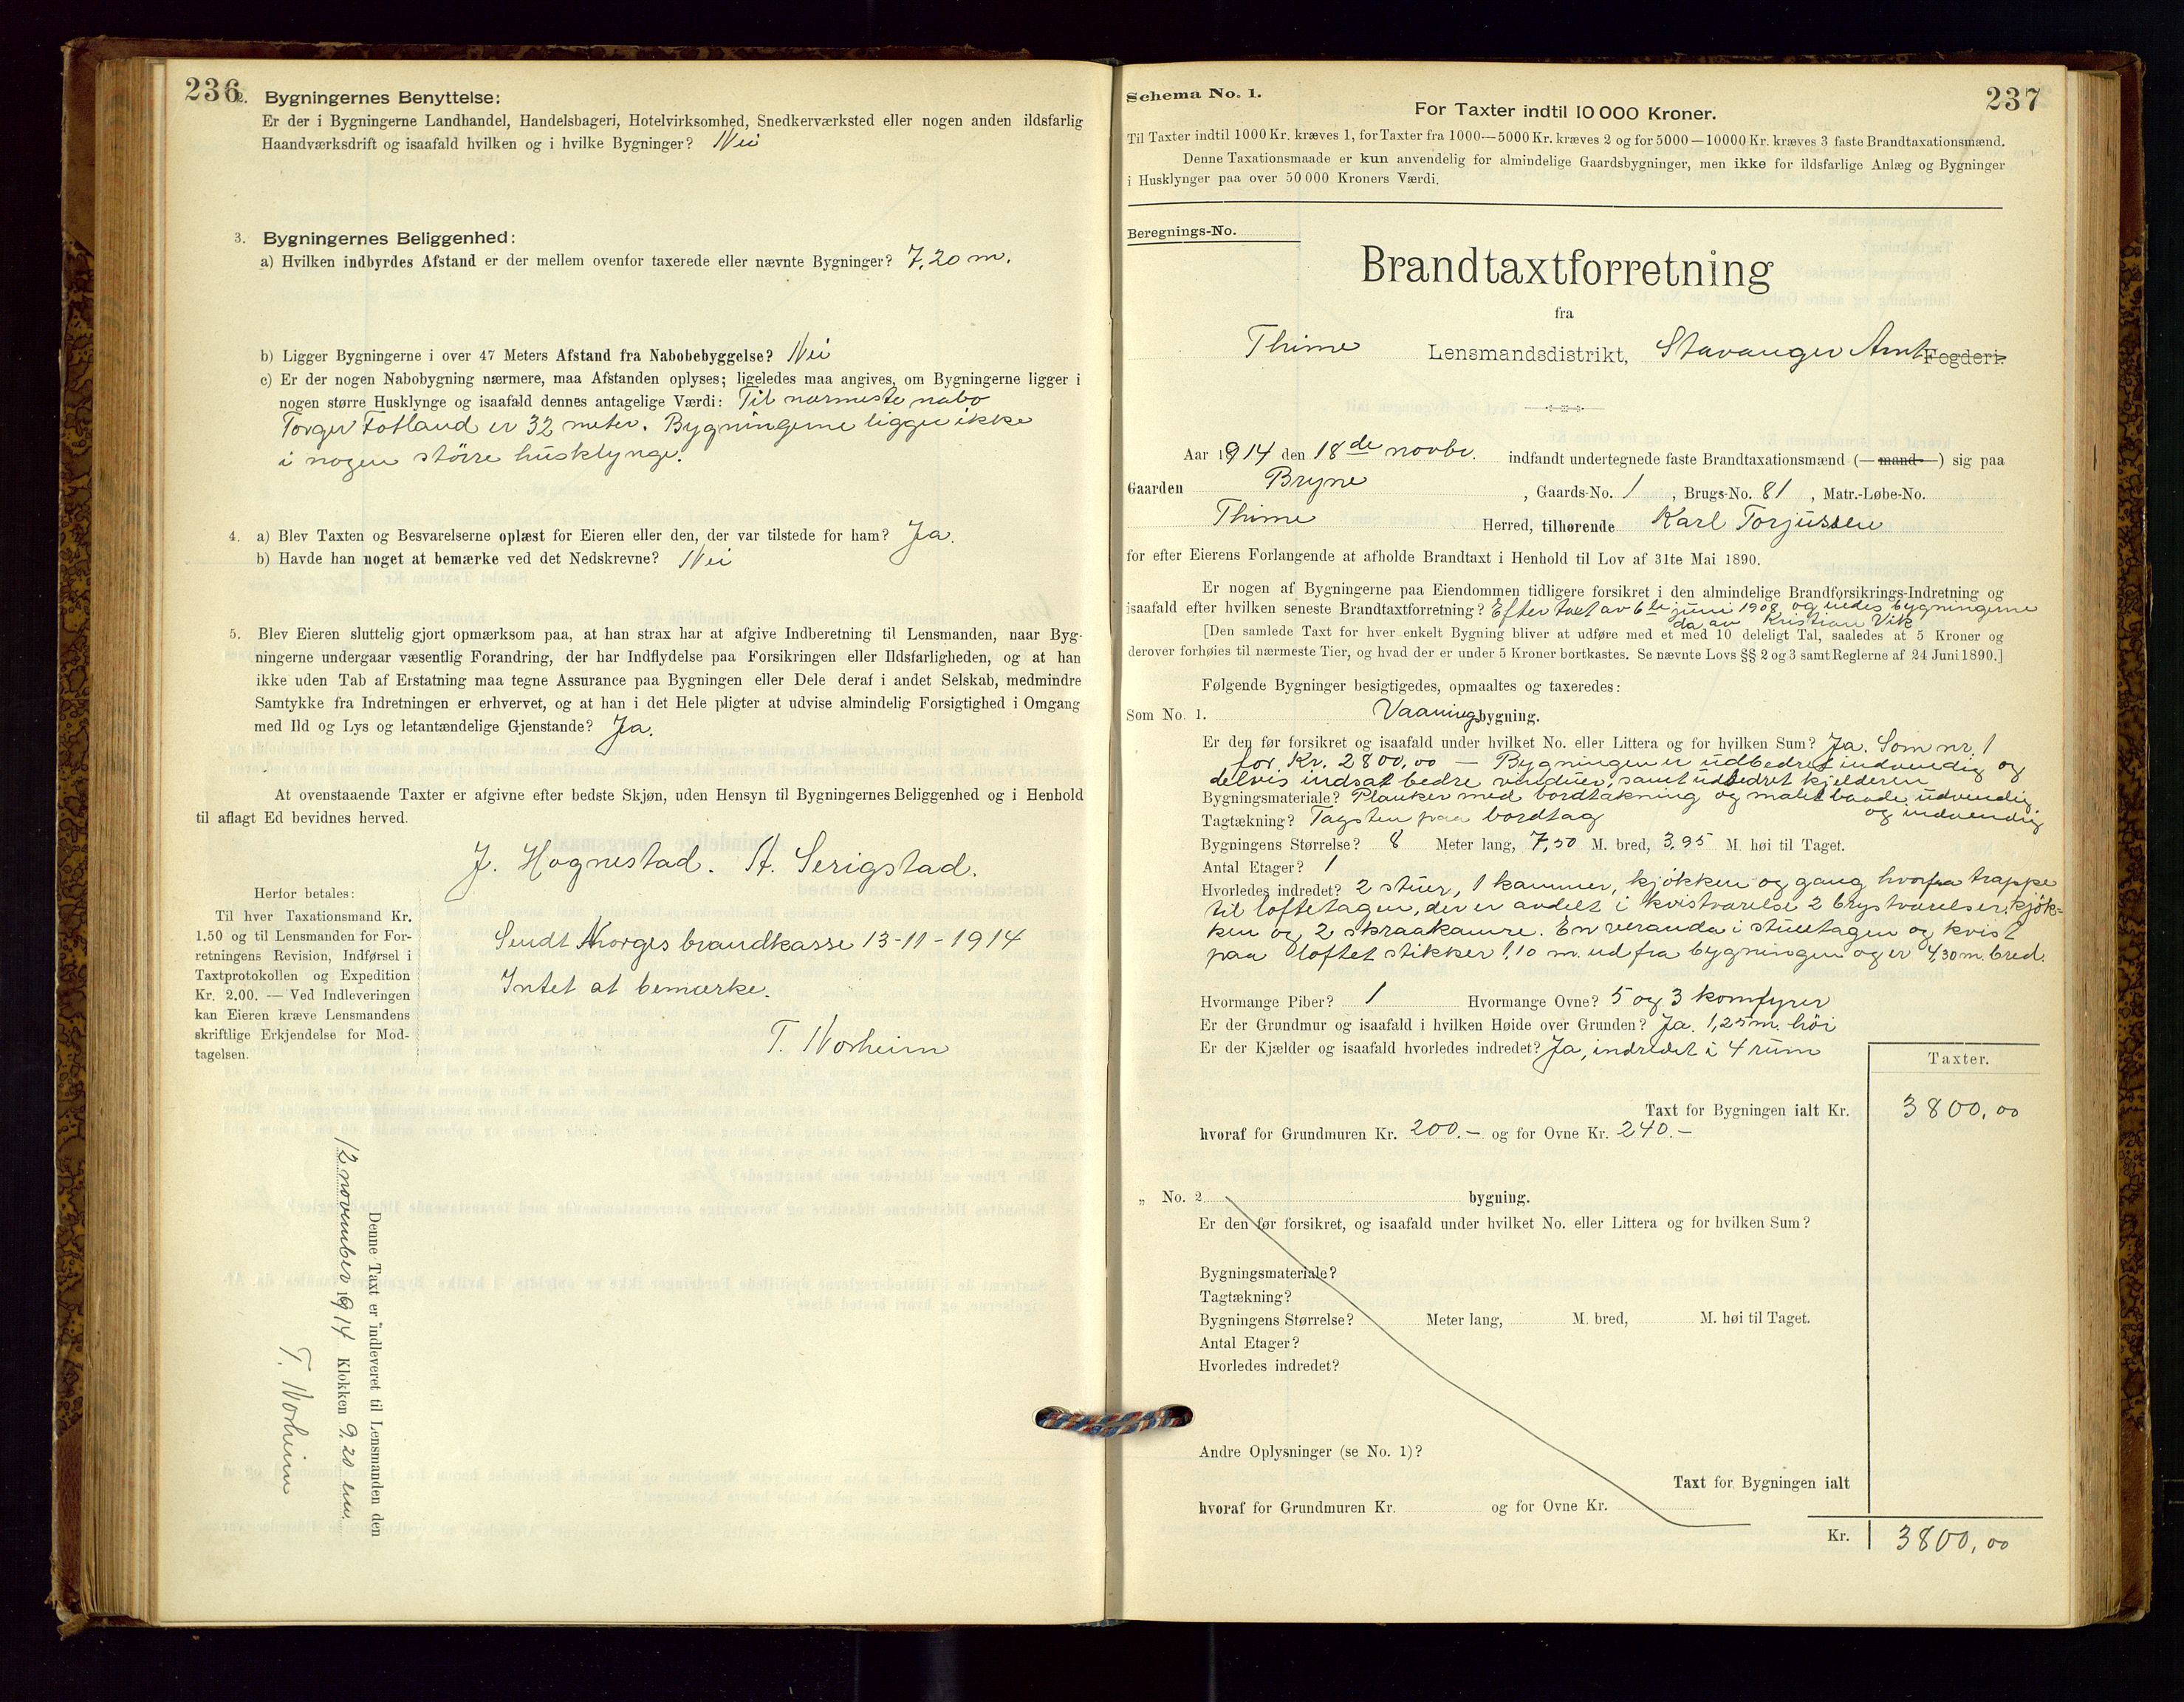 236
2. Bygningernes Benyttelse:
Er der i Bygningerne Landhandel, Handelsbageri, Hotelvirksomhed, Snedkerværksted eller nogen anden ildsfarlig
Haandværksdrift og isaafald hvilken og i hvilke Bygninger? Nei
3. Bygningernes Beliggenhed:
a) Hvilken indbyrdes Afstand er der mellem ovenfor taxerede eller nævnte Bygninger? 7,20 m.
b) Ligger Bygningerne i over 47 Meters Afstand fra Nabobebyggelse? Nei
c) Er der nogen Nabobygning nærmere, maa Afstanden oplyses; ligeledes maa angives, om Bygningerne ligger i
nogen større Husklynge og isaafald dennes antagelige Værdi: Til nærmeste nabo
Torger Fotland er 32 meter. Bygningerne ligger ikke
i nogen større husklynge.
4. a) Blev Taxten og Besvarelserne oplæst for Eieren eller den, der var tilstede for ham? Ja.
b) Havde han noget at bemærke ved det Nedskrevne? Nei
5. Blev Eieren sluttelig gjort opmærksom paa, at han strax har at afgive Indberetning til Lensmanden, naar Byg-
ningerne undergaar væsentlig Forandring, der har Indflydelse paa Forsikringen eller Ildsfarligheden, og at han
ikke uden Tab af Erstatning maa tegne Assurance paa Bygningen eller Dele deraf i andet Selskab, medmindre
Samtykke fra Indretningen er erhvervet, og at han i det Hele pligter at udvise almindelig Forsigtighed i Omgang
med Ild og Lys og letantændelige Gjenstande? Ja.
At ovenstaaende Taxter er afgivne efter bedste Skjøn, uden Hensyn til Bygningernes Beliggenhed og i Henhold
til aflagt Ed bevidnes herved.
J. Hognestad. A. Serigstad.
Herfor betales:
Til hver Taxationsmand Kr.
1.50 og til Lensmanden for For-
retningens Revision, Indførsel i
Taxtprotokollen og Expedition
Kr. 2.00. — Ved Indleveringen
kan Eieren kræve Lensmandens
skriftlige Erkjendelse for Mod-
tagelsen.
Sendt Norges brandkasse 13-11-1914
Intet at bemærke.
T. Norheim
Denne Taxt er indleveret til Lensmanden den
12 november 1914 Klokken 9,20 em.
T. Norheim
237
Schema No. 1.
For Taxter indtil 10 000 Kroner.
Til Taxter indtil 1000 Kr. kræves 1, for Taxter fra 1000—5000 Kr. kræves 2 og for 5000—10000 Kr. kræves 3 faste Brandtaxationsmænd.
Denne Taxationsmaade er kun anvendelig for almindelige Gaardsbygninger, men ikke for ildsfarlige Anlæg og Bygninger
i Husklynger paa over 50 000 Kroners Værdi.
Beregnings-No.
Brandtaxtforretning
fra
Thime Lensmandsdistrikt, Stavanger Amt Fogderi.
Aar 1914 den 18de novbr. indfandt undertegnede faste Brandtaxationsmænd (—mand—) sig paa
Gaarden Bryne, Gaards-No. 1, Brugs-No. 81, Matr.-Løbe-No.
Thime Herred, tilhørende Karl Torjussen
for efter Eierens Forlangende at afholde Brandtaxt i Henhold til Lov af 31te Mai 1890.
Er nogen af Bygningerne paa Eiendommen tidligere forsikret i den almindelige Brandforsikrings-Indretning og
isaafald efter hvilken seneste Brandtaxtforretning? Efter taxt av 6te juni 1908, og eiedes bygningerne
da av Kristian Vik
[Den samlede Taxt for hver enkelt Bygning bliver at udføre med et med 10 deleligt Tal, saaledes at 5 Kroner og
derover forhøies til nærmeste Tier, og hvad der er under 5 Kroner bortkastes. Se nævnte Lovs §§ 2 og 3 samt Reglerne af 24 Juni 1890.]
Følgende Bygninger besigtigedes, opmaaltes og taxeredes:
Som No. 1. Vaanings bygning.
Er den før forsikret og isaafald under hvilket No. eller Littera og for hvilken Sum? Ja. Som nr. 1
for Kr. 2800,00 — Bygningen er udbedret indvendig og
delvis indsat bedre vinduer, samt udbedret kjelderen
Bygningsmateriale? Planker med bordtækning og malet baade udvendig
og indvendig
Tagtækning? Tagsten paa bordtag
Bygningens Størrelse? 8 Meter lang, 7,50 M. bred, 3,95 M. høi til Taget.
Antal Etager? 1
Hvorledes indredet? 2 stuer, 1 kammer, kjøkken og gang hvorfra trappe
til loftetagen, der er avdelt i kvistværelse 2 brystværelser, kjøk-
ken og 2 skraakamre. En veranda i stuetagen og kvist
paa loftet stikker 1,10 m. ud fra bygningen og er 4,30 m. bred.
Hvormange Piber? 1 Hvormange Ovne? 5 og 3 komfyrer
Er der Grundmur og isaafald i hvilken Høide over Grunden? Ja. 1,25 m. høi
Er der Kjælder og isaafald hvorledes indredet? Ja, indredet i 4 rum
Taxter.
Taxt for Bygningen ialt Kr. 3800,00
hvoraf for Grundmuren Kr. 200.- og for Ovne Kr. 240.-
„ No. 2 bygning.
Er den før forsikret, og isaafald under hvilket No. eller Littera og for hvilken Sum?
Bygningsmateriale?
Tagtækning?
Bygningens Størrelse? Meter lang, M. bred, M. høi til Taget.
Antal Etager?
Hvorledes indredet?
Andre Oplysninger (se No. 1)?
Taxt for Bygningen ialt
hvoraf for Grundmuren Kr. og for Ovne Kr.
Kr. 3800,00